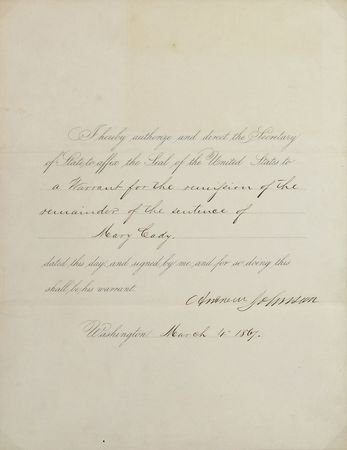 I hereby authorize and direct the Secretary
of State to affix the Seal of the United States to
a Warrant for the remission of the
remainder of the sentence of
Mary Cady.
dated this day, and signed by me, and for so doing this
shall be his warrant.
Andrew Johnson
Washington March 4. 1867.